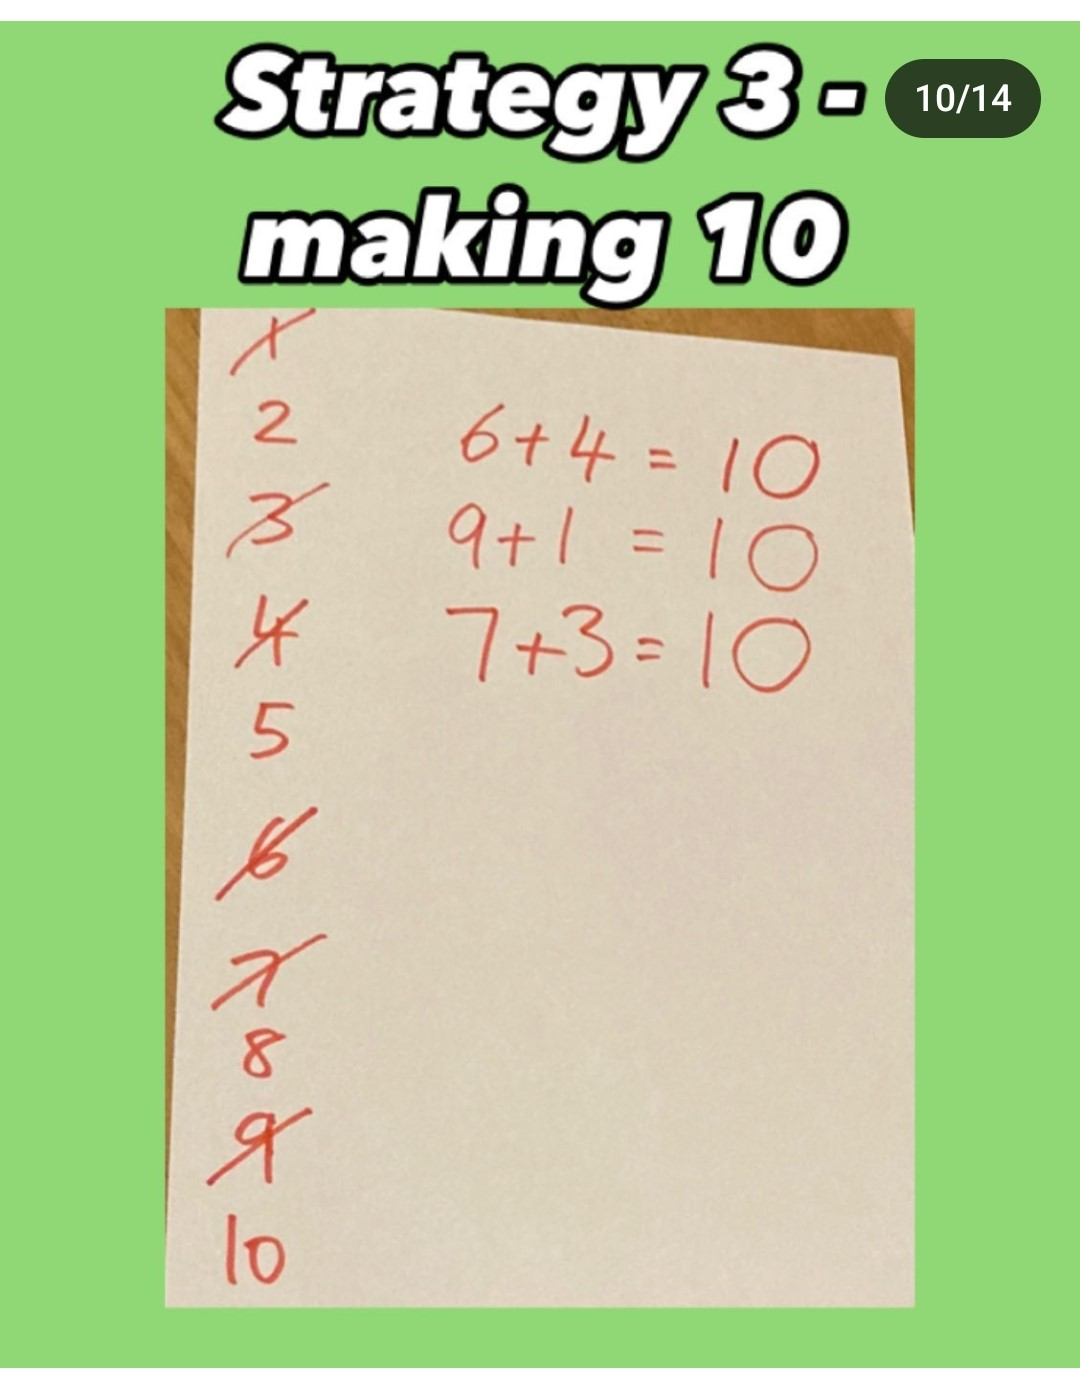 Strategy 3 -
10/14
making 10
1
2
3
4
5
6
7
8
9
10
6+4 = 10
9+1 = 10
7+3 = 10